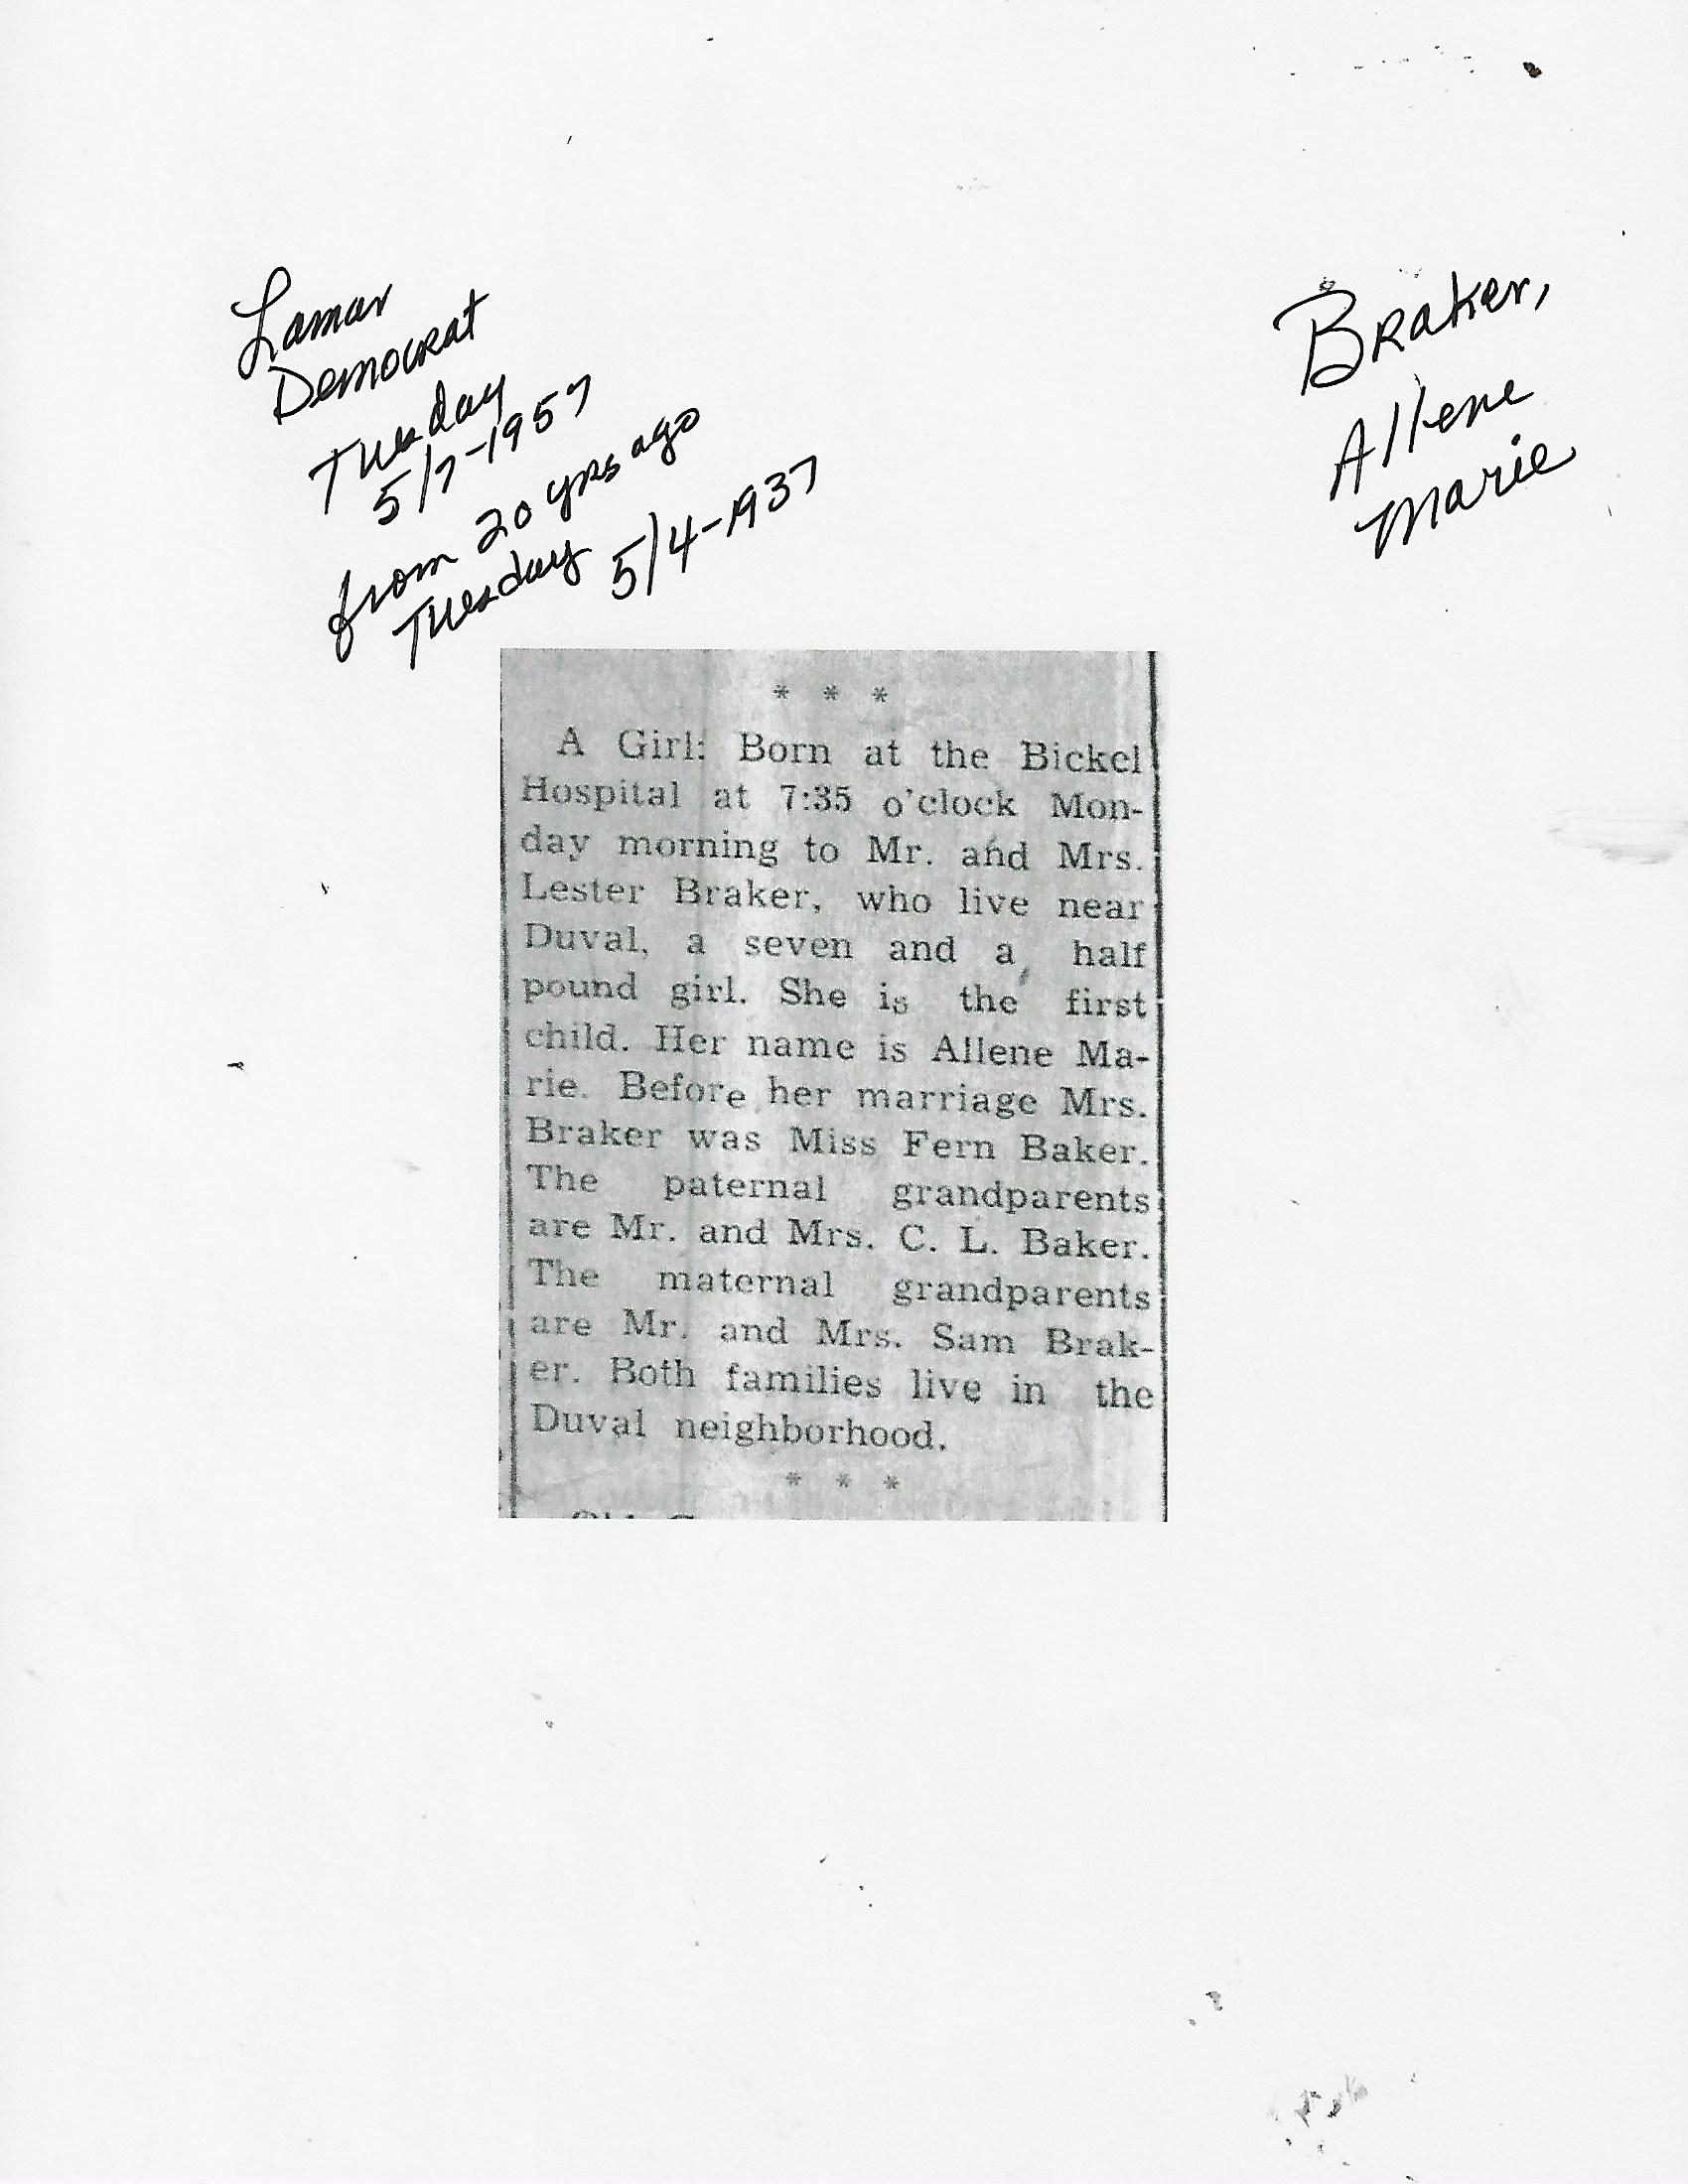 Lamar
Democrat
Tuesday
5/7-1957
from 20 yrs ago
Tuesday 5/4-1937
Braker,
Allene
Marie
* * *
A Girl: Born at the Bickel
Hospital at 7:35 o'clock Mon-
day morning to Mr. and Mrs.
Lester Braker, who live near
Duval, a seven and a half
pound girl. She is the first
child. Her name is Allene Ma-
rie. Before her marriage Mrs.
Braker was Miss Fern Baker.
The paternal grandparents
are Mr. and Mrs. C. L. Baker.
The maternal grandparents
are Mr. and Mrs. Sam Brak-
er. Both families live in the
Duval neighborhood.
* * *